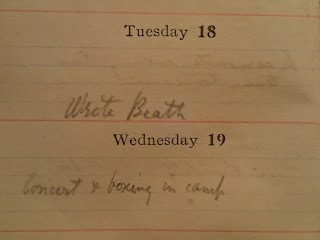 Tuesday 18
Wrote Beath
Wednesday 19
Concert & boxing in camp